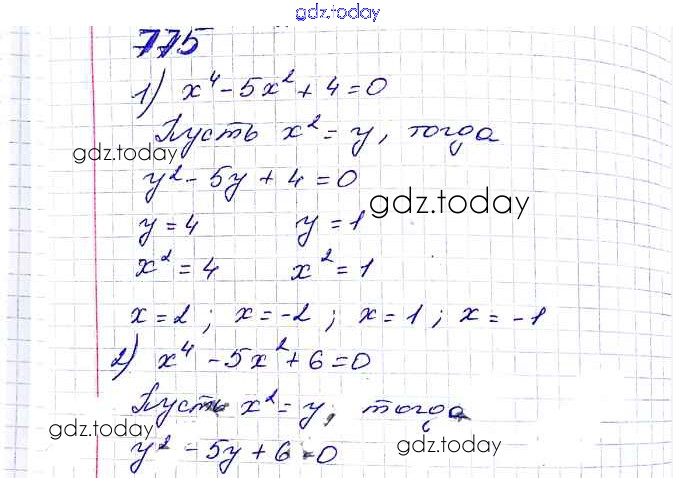 gdz.today
775
1) x⁴ - 5x² + 4 = 0
Пусть x² = y, тогда
gdz.today
y² - 5y + 4 = 0
gdz.today
y = 4 y = 1
x² = 4 x² = 1
x = 2 ; x = -2 ; x = 1 ; x = -1
2) x⁴ - 5x² + 6 = 0
Пусть x² = y, тогда
gdz.today
gdz.today
y² - 5y + 6 = 0